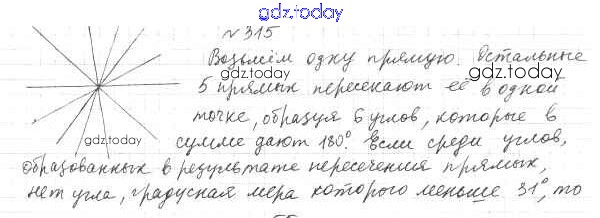 gdz.today
№315
Возьмём одну прямую. Остальные
gdz.today
gdz.today
5 прямых пересекают её в одной
точке, образуя 6 углов, которые в
gdz.today
сумме дают 180°. Если среди углов,
образованных в результате пересечения прямых,
нет угла, градусная мера которого меньше 31°, то